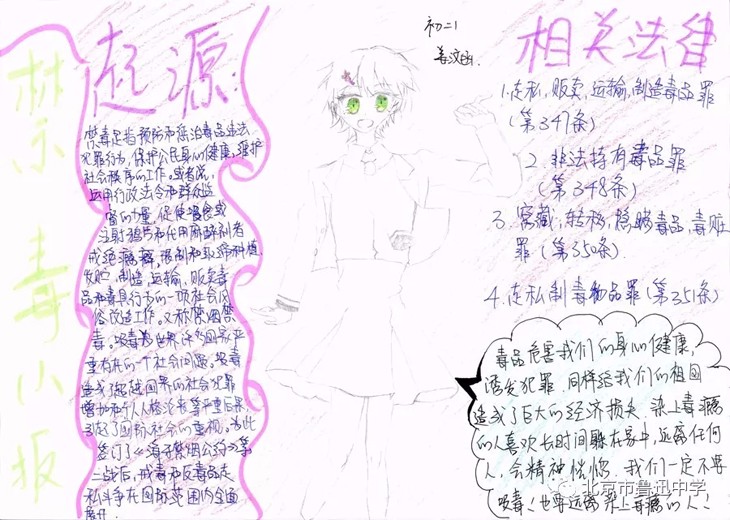 禁毒小报
起源:
禁毒是指预防和惩治毒品违法
犯罪行为,保护公民身心健康,维护
社会秩序的工作。或者说,
运用行政法令和群众监
督的力量,促使吸食或
注射鸦片和代用麻醉剂者
戒绝瘾癖,限制和取缔种植
贩贮,制造,运输,贩卖毒
品和毒具行为的一项社会风
俗改造工作。又称禁烟禁
毒。吸毒是世界许多国家严
重存在的一个社会问题。吸毒
造成了超越国界的社会犯罪
增加和个人人格沦丧等严重后果,
引起了国际社会的重视。为此
签订了《海牙禁烟公约》等
二战后,戒毒和反毒品走
私斗争在国际范围内全面
展开.
初二1
姜汶函.
相关法律
1.走私,贩卖,运输,制造毒品罪
(第347条)
2.非法持有毒品罪
(第348条)
3.窝藏,转移,隐瞒毒品,毒赃
罪(第350条).
4.走私制毒物品罪(第351条)
毒品危害我们的身心健康,
诱发犯罪.同样给我们的祖国
造成了巨大的经济损失.染上毒瘾
的人喜欢长时间躲在家中,远离任何
人,会精神恍惚.我们一定不要
吸毒!也要远离染上毒瘾的人!
北京市鲁迅中学